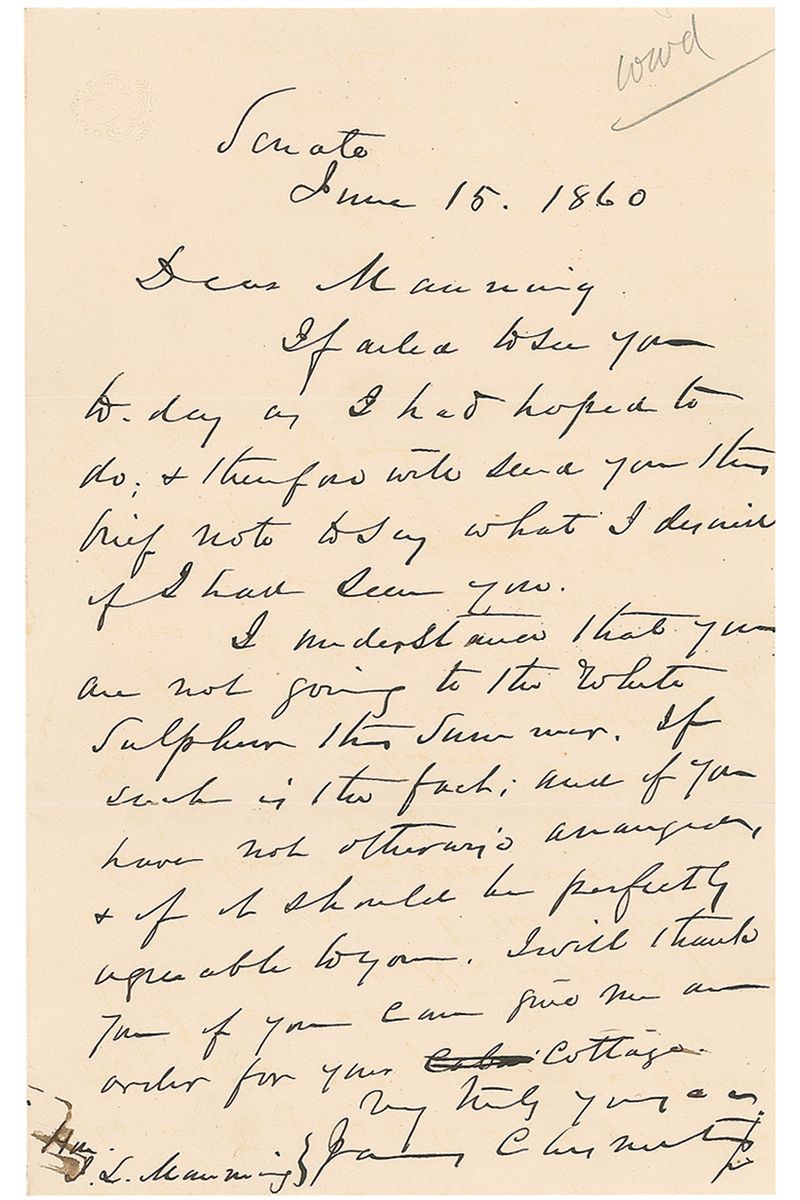 Senate
June 15. 1860
Dear Manning.
I failed to see you
to-day as I had hoped to
do; & therefore will send you this
brief note to say what I desired
if I had seen you.
I understand that you
are not going to the White
Sulphur this Summer. If
such is the fact; and if you
have not otherwise arranged,
& if it should be perfectly
agreeable to you. I will thank
you if you can give me an
order for your Cottage.
Very truly yours
James Chesnut Jr.
Hon.
J. L. Manning